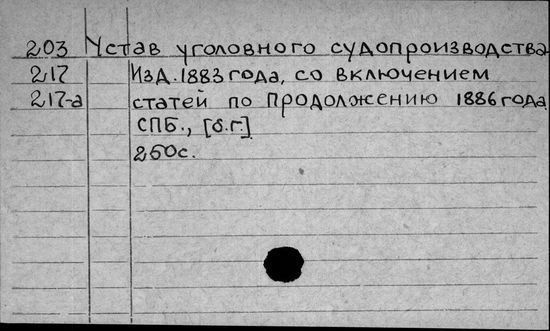 203 Устав уголовного судопроизводства
217 Изд. 1883 года, со включением
217-а статей по Продолжению 1886 года
СПБ., [б.г.]
250с.